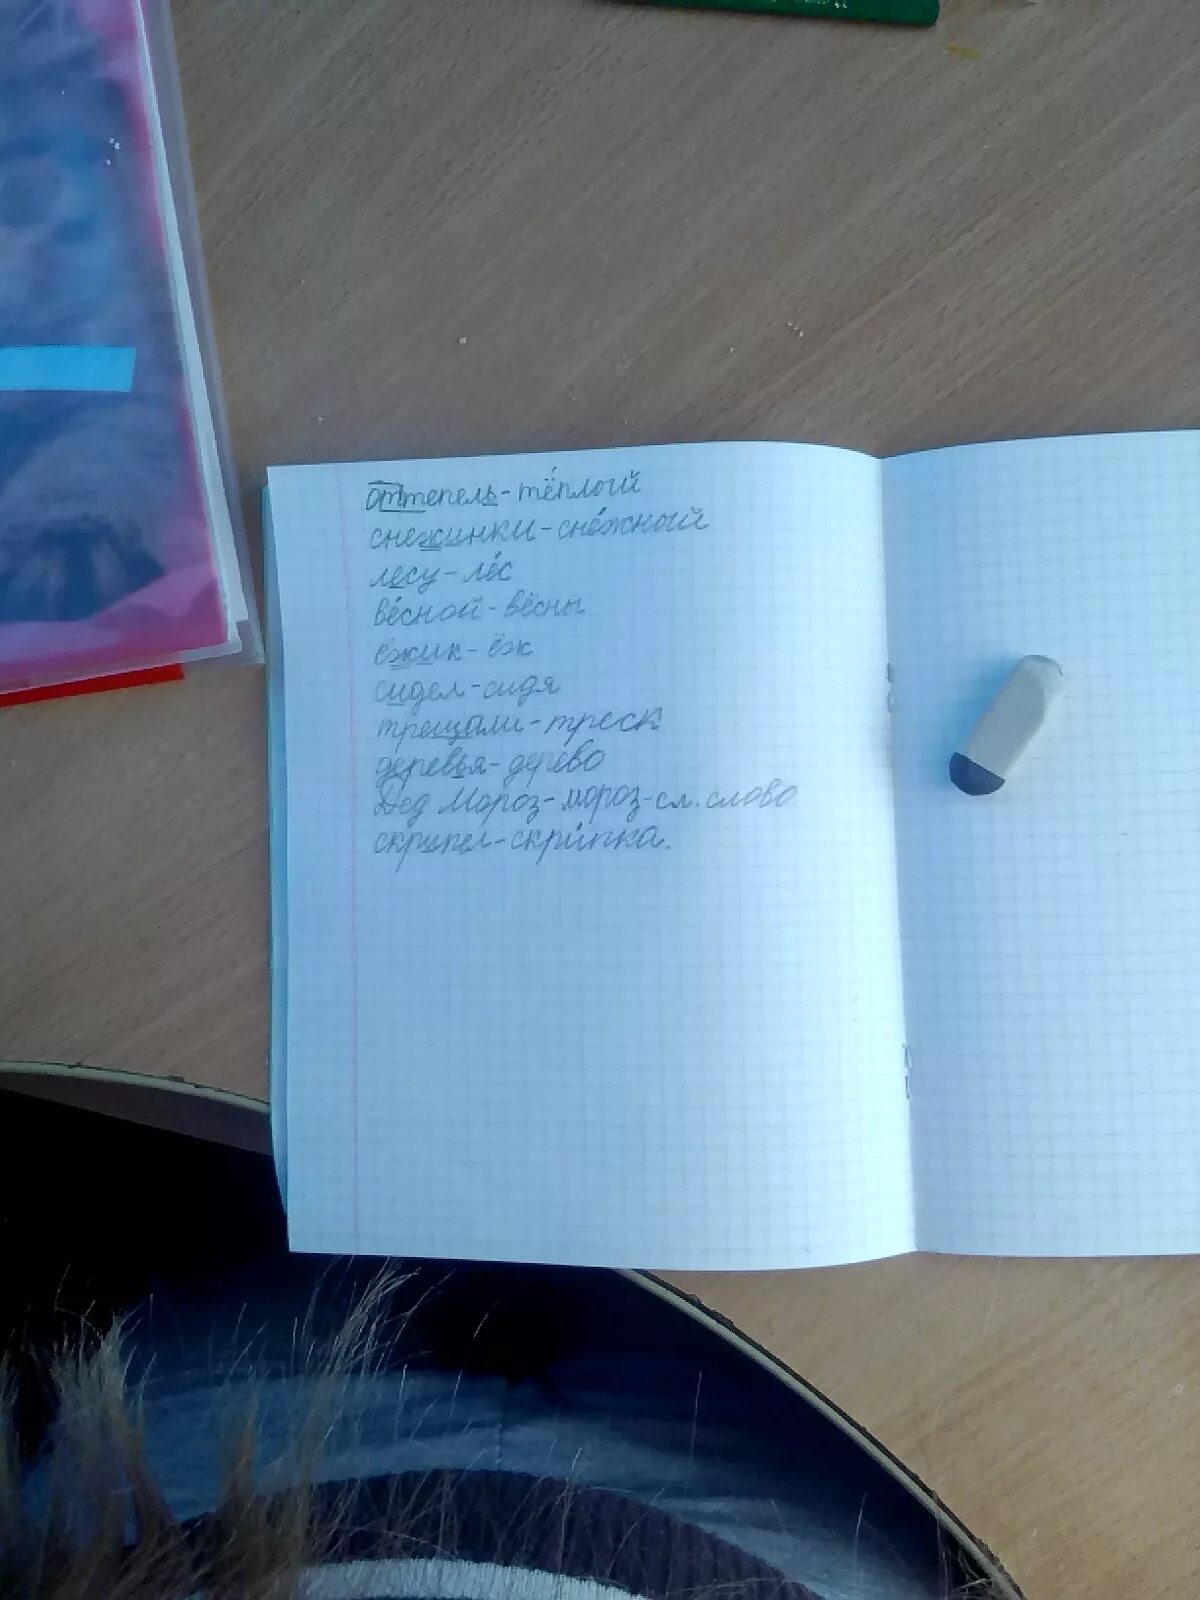 оттепель-тёплый
снежинки-снежный
лесу-лес
весной-вёсны
ёжик-ёж
сидел-сидя
трещали-треск
деревья-дерево
Дед Мороз-мороз-сл. слово
скрепел-скрипка.